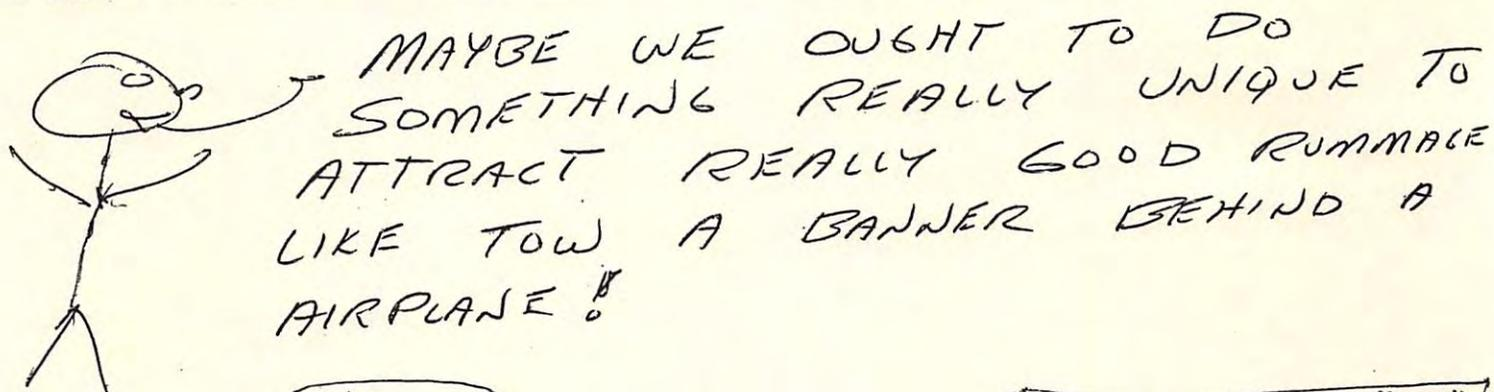 MAYBE WE OUGHT TO DO
SOMETHING REALLY UNIQUE TO
ATTRACT REALLY GOOD RUMMAGE
LIKE TOW A BANNER BEHIND A
AIRPLANE!